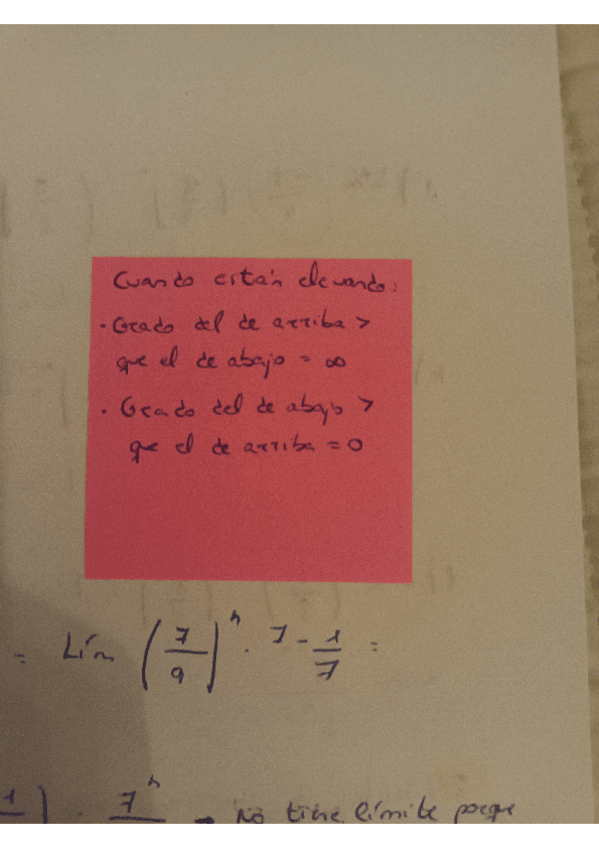 Cuando están elevando:
· Grado del de arriba >
que el de abajo = ∞
· Grado del de abajo >
que el de arriba = 0
= Lím (7/9)^n · 7 - 1/7 =
1 ) · 7^n → No tiene límite porque